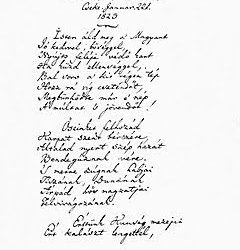 Cseke, Januar. 22d.
1823
Isten áld meg a' Magyart
Jó kedvvel, bőséggel,
Nyújts feléje védő kart
Ha küzd ellenséggel,
Bal sors a' kit régen tép
Hozz rá víg esztendőt,
Megbünhödte már e' nép
A' múltat 's jövendőt!
Őseinket felhozád
Kárpát szent bérczére,
Általad nyert szép hazát
Bendegúznak vére.
'S merre zúgnak habjai
Tiszának, Dunának,
Árpád hős magzatjai
Felvirágozának.
Értünk Kunság mezején
Ért kalászt lengettél,